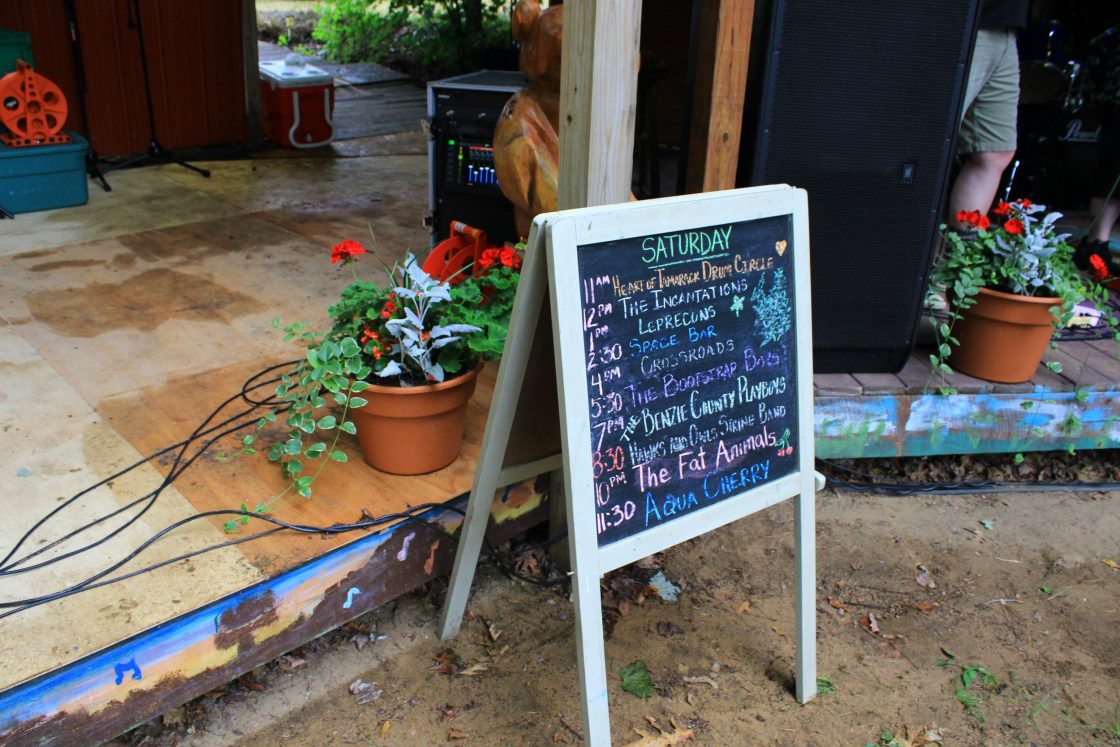 SATURDAY
11AM HEART OF TAMARACK DRUM CIRCLE
12PM THE INCANTATIONS
1PM LEPRECONS
2:30 SPACE BAR
4PM CROSSROADS
5:30 THE BOOTSTRAP BOYS
7PM THE BENZIE COUNTY PLAYBOYS
8:30 HAWKS AND OWLS STRING BAND
10PM The FAT Animals
11:30 AQUA CHERRY
Pearl